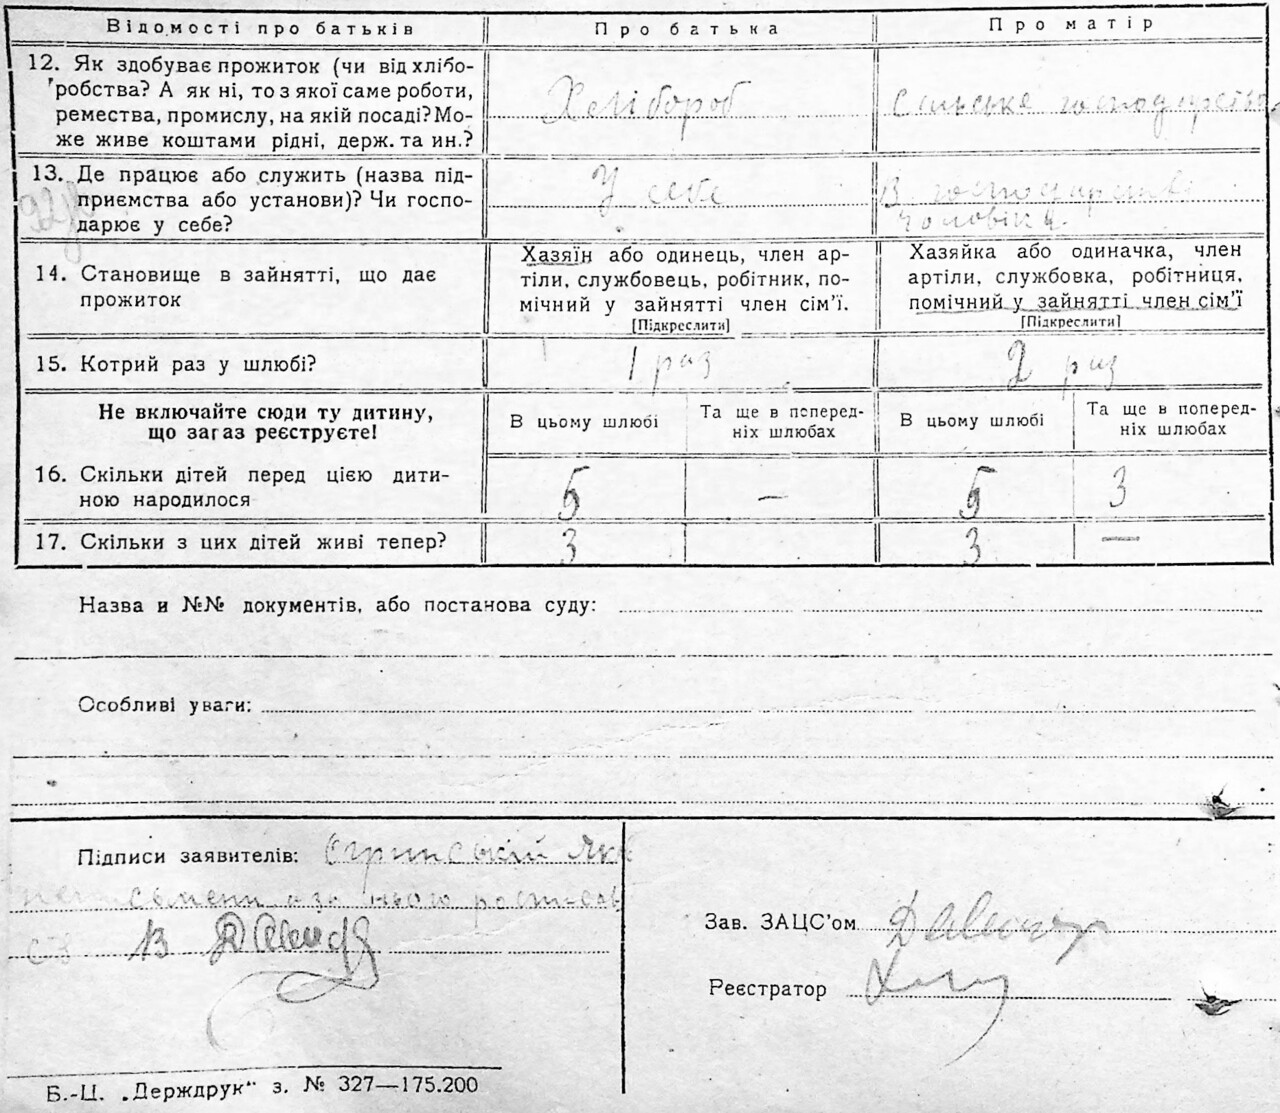 Відомості про батьків Про батька Про матір
12. Як здобуває прожиток (чи від хлібо-
робства? А як ні, то з якої саме роботи,
ремества, промислу, на якій посаді? Мо-
же живе коштами рідні, держ. та ин.?
Хлібороб
Сільське господарство
13. Де працює або служить (назва під-
приємства або установи)? Чи госпо-
дарює у себе?
У себе
В господарстві
чоловіка.
14. Становище в зайнятті, що дає
прожиток
Хазяїн або одинець, член ар-
тіли, службовець, робітник, по-
мічний у зайнятті член сім’ї.
[Підкреслити]
Хазяйка або одиначка, член
артіли, службовка, робітниця,
помічний у зайнятті член сім’ї
[Підкреслити]
15. Котрий раз у шлюбі? 1 раз 2 раз
Не включайте сюди ту дитину,
що загаз реєструєте!
В цьому шлюбі
Та ще в поперед-
ніх шлюбах
В цьому шлюбі
Та ще в поперед-
ніх шлюбах
16. Скільки дітей перед цією дити-
ною народилося
5 — 5 3
17. Скільки з цих дітей живі тепер? 3 3 —
Назва и №№ документів, або постанова суду:
Особливі уваги:
Підписи заявителів: Огринський Як
неписьмени а за нього росписав
ся
Зав. ЗАЦС’ом
Реєстратор
Б.-Ц. „Держдрук“ з. № 327—175.200